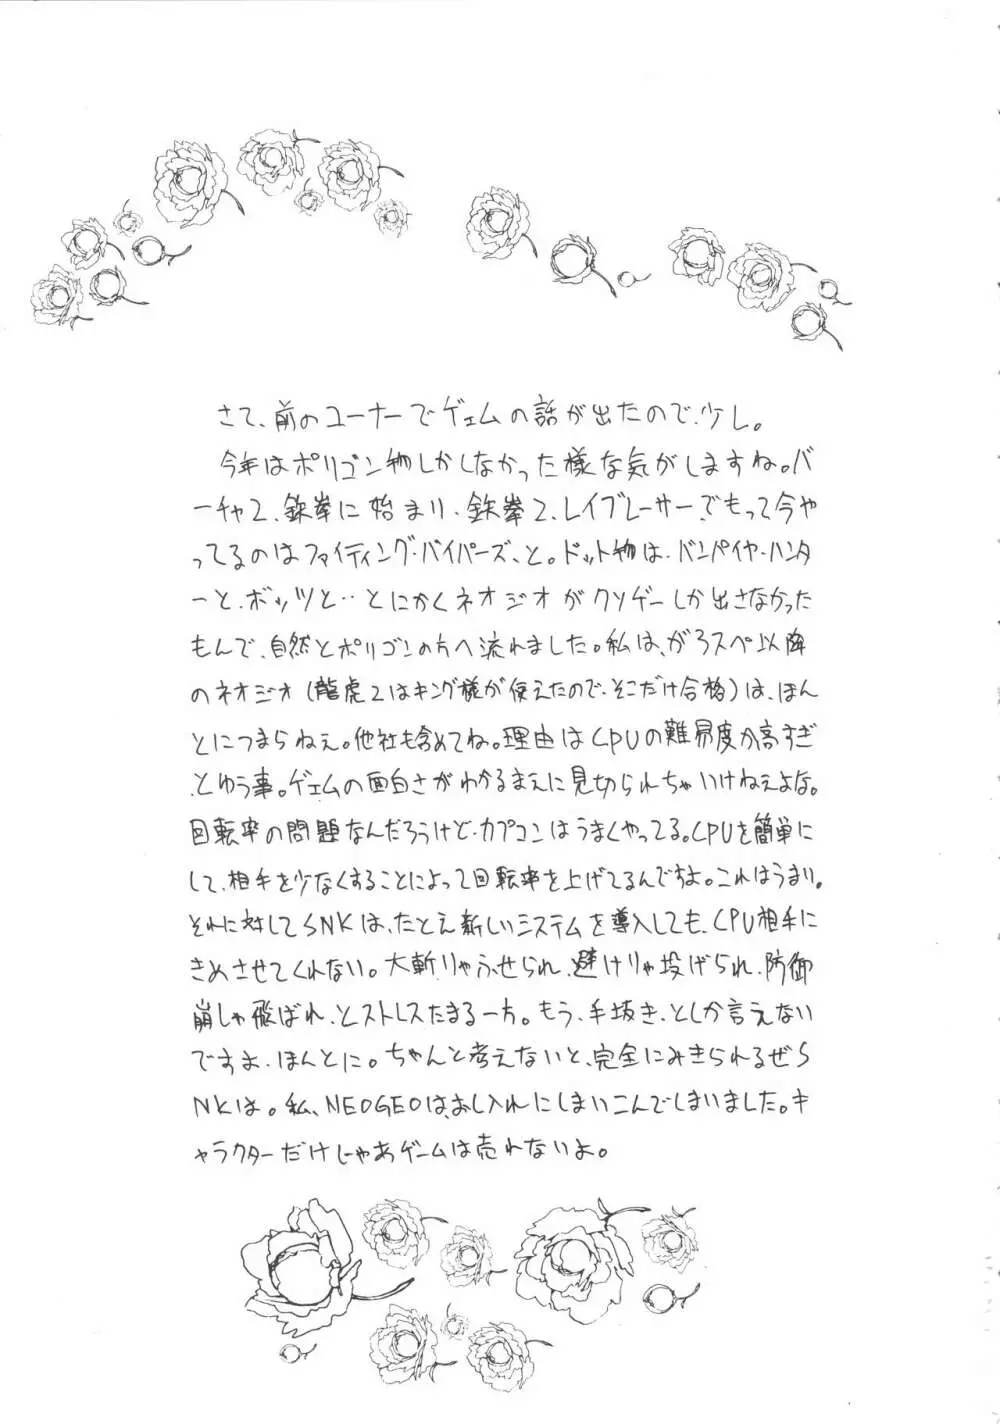 さて、前のコーナーでゲェムの話が出たので、少し。
今年はポリゴン物しかしなかった様な気がしますね。バ
ーチャ2、鉄拳に始まり、鉄拳2、レイブレーサー、でもって今や
ってるのはファイティング・バイパーズ、と。ドット物は、バンパイヤ・ハンタ
ーと、ボッツと‥とにかくネオジオがクソゲーしか出さなかった
もんで、自然とポリゴンの方へ流れました。私は、がろスペ以降
のネオジオ(龍虎2はキング様が使えたので、そこだけ合格)は、ほん
とにつまらねぇ。他社も含めてね。理由はCPUの難易度が高すぎ
とゆう事。ゲェムの面白さがわかるまえに見切られちゃいけねぇよな。
回転率の問題なんだろうけど、カプコンはうまくやってる。CPUを簡単に
して、相手を少なくすることによって回転率を上げてるんですよ。これはうまい。
それに対してSNKは、たとえ新しいシステムを導入しても、CPU相手に
きめさせてくれない。大斬りゃふせられ、避けりゃ投げられ、防御
崩しゃ飛ばれ、とストレスたまる一方。もう、手抜き、としか言えない
ですよ、ほんとに。ちゃんと考えないと、完全にみきられるぜS
NKは。私、NEOGEOは、おし入れにしまいこんでしまいました。キ
ャラクターだけじゃあゲームは売れないよ。